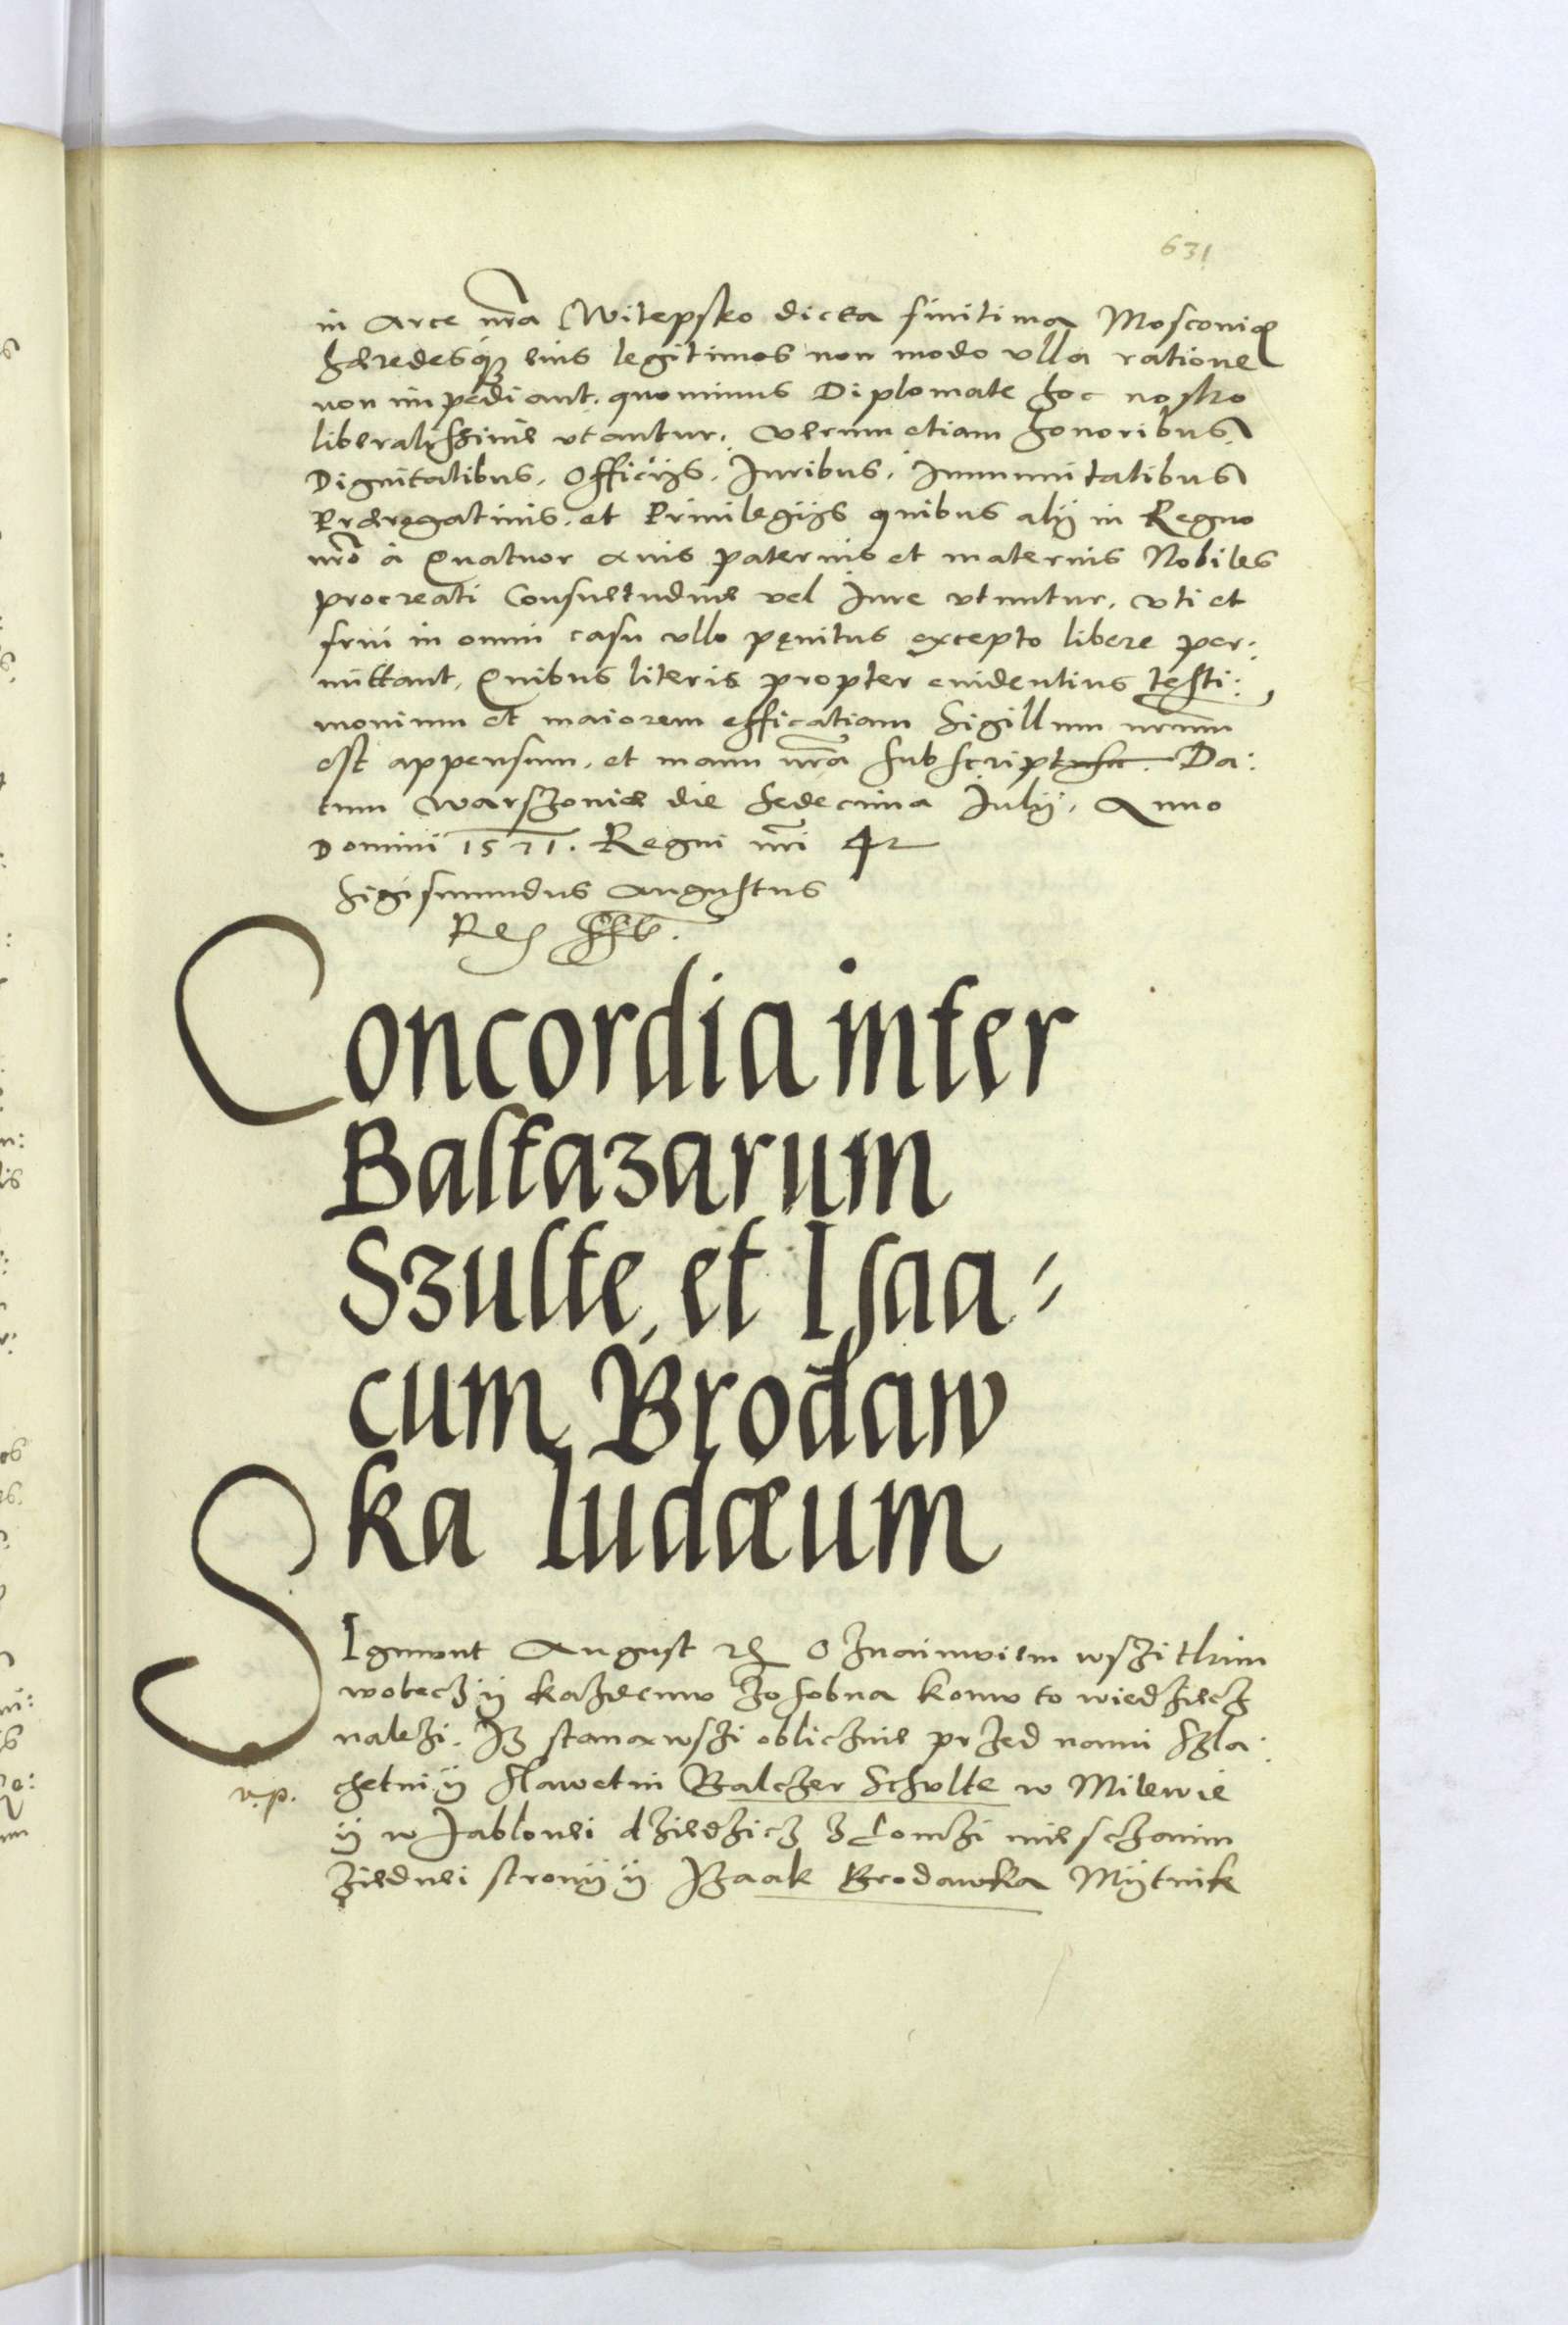 631
in Arce nra Witepsko dicta finitima Mosconiæ
hæredesq́ue eius legitimos non modo vlla ratione
non impediant. quominus Diplomate hoc nostro
liberalissime vtantur. verum etiam honoribus.
Dignitatibus. Officijs. Iuribus. Immunitatibus
Prærogatiuis. et Priuilegijs quibus alij in Regno
nrō à Quatuor auis paternis et maternis Nobiles
procreati Consuetudine vel Iure vtuntur. vti et
frui in omni casu vllo penitus excepto libere per:
mittant. Quibus literis propter euidentius testi:
monium et maiorem efficatiam Sigillum nrum
est appensum. et manu nra subscript Da:
tum Warszouiæ die Sedecima Iulij. Anno
Domini 1571. Regni nri 42
Sigismundus Augustus
Rex
Concordia inter
Baltazarum
Szulte, et Isaa-
cum Brodaw
ka Iudæum
SIgmont August O Znaimuiem wszitkim
wobecz ÿ kazdemu Zosobna komu to wiedziecz
nalezi. Iz stanawszi obliczmie przed nami Szla:
v.p.
chetni ÿ slawetni Balczer Schulte w Milewie
ÿ w Jablonei dziedzicz z Lomzi miesczanin
Ziednei stronÿ ÿ Izaak Brodawka Mÿtnik